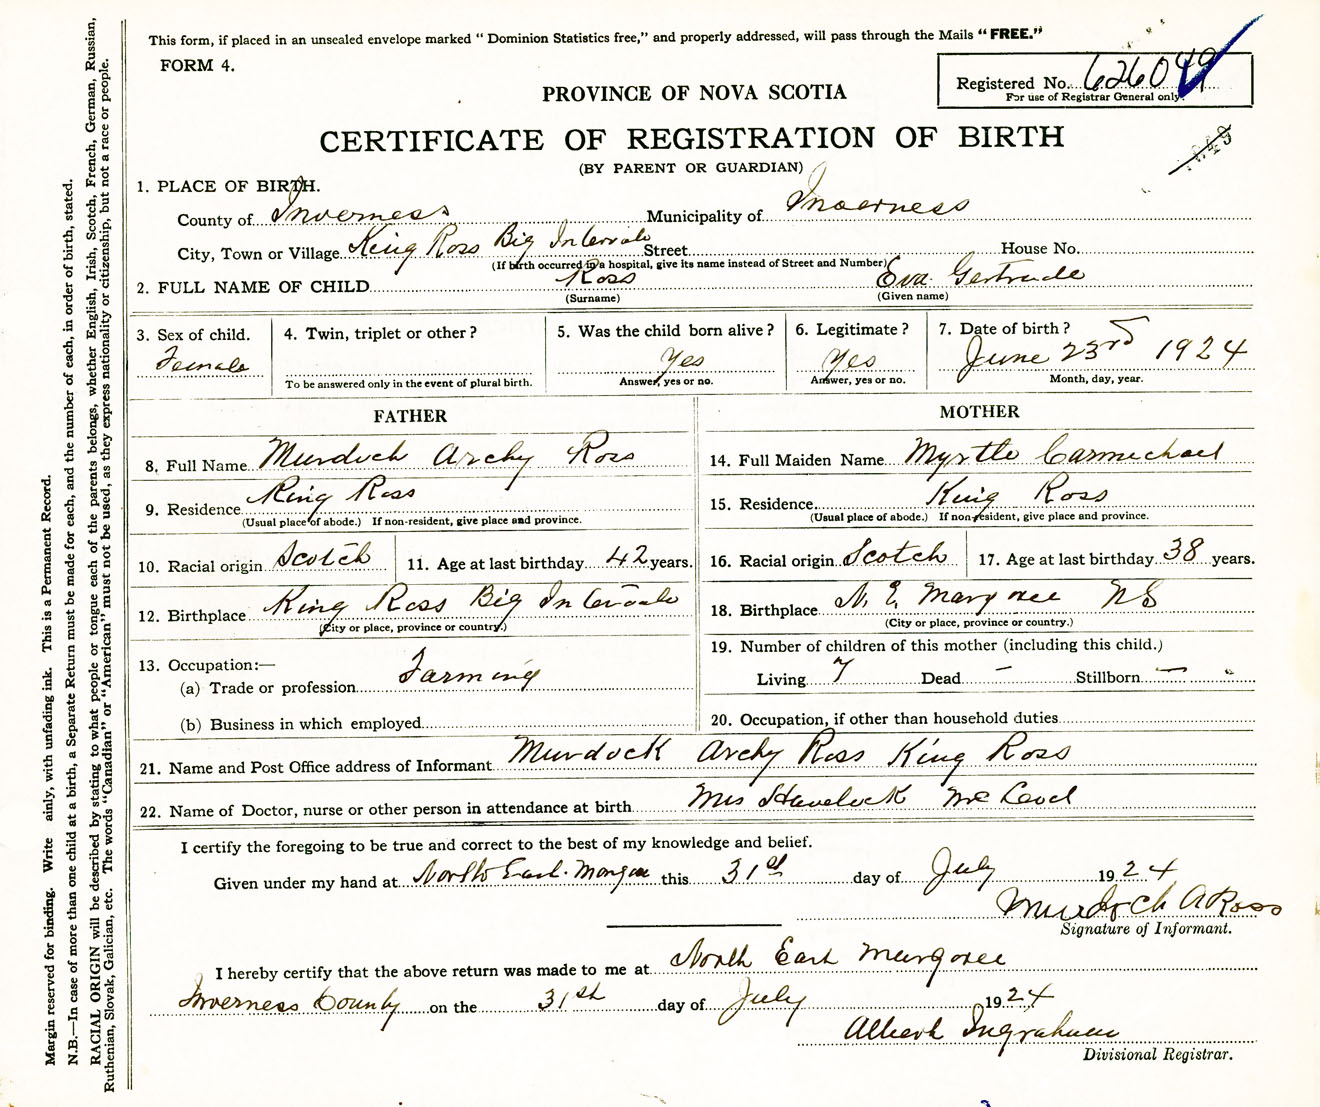 This form, if placed in an unsealed envelope marked “ Dominion Statistics free,” and properly addressed, will pass through the Mails “ FREE.”
FORM 4.
Registered No. 626049
For use of Registrar General only.
PROVINCE OF NOVA SCOTIA
CERTIFICATE OF REGISTRATION OF BIRTH
(BY PARENT OR GUARDIAN)
1. PLACE OF BIRTH.
County of Inverness Municipality of Inverness
City, Town or Village King Ross Big Intervale Street House No.
(If birth occurred in a hospital, give its name instead of Street and Number)
2. FULL NAME OF CHILD Ross Eva Gertrude
(Surname) (Given name)
3. Sex of child. 4. Twin, triplet or other ? 5. Was the child born alive ? 6. Legitimate ? 7. Date of birth ?
Female Yes Yes June 23rd 1924
To be answered only in the event of plural birth. Answer, yes or no. Answer, yes or no. Month, day, year.
FATHER
8. Full Name Murdoch Archy Ross
9. Residence King Ross
(Usual place of abode.) If non-resident, give place and province.
10. Racial origin Scotch 11. Age at last birthday 42 years.
12. Birthplace King Ross Big Intervale
(City or place, province or country.)
13. Occupation:—
(a) Trade or profession Farming
(b) Business in which employed
MOTHER
14. Full Maiden Name Myrtle Carmichael
15. Residence King Ross
(Usual place of abode.) If non-resident, give place and province.
16. Racial origin Scotch 17. Age at last birthday 38 years.
18. Birthplace N. E. Margaree NS
(City or place, province or country.)
19. Number of children of this mother (including this child.)
Living 7 Dead — Stillborn —
20. Occupation, if other than household duties
21. Name and Post Office address of Informant Murdock Archy Ross King Ross
22. Name of Doctor, nurse or other person in attendance at birth Mrs Havelock McLeod
I certify the foregoing to be true and correct to the best of my knowledge and belief.
Given under my hand at North East Margaree this 31st day of July 1924
Murdoch A Ross
Signature of Informant.
I hereby certify that the above return was made to me at North East Margaree
Inverness County on the 31st day of July 1924
Albert Ingraham
Divisional Registrar.
Margin reserved for binding. Write ainly, with unfading ink. This is a Permanent Record.
N.B.—In case of more than one child at a birth, a Separate Return must be made for each, and the number of each, in order of birth, stated.
RACIAL ORIGIN will be described by stating to what people or tongue each of the parents belongs, whether English, Irish, Scotch, French, German, Russian,
Ruthenian, Slovak, Galician, etc. The words “Canadian” or “American” must not be used, as they express nationality or citizenship, but not a race or people.